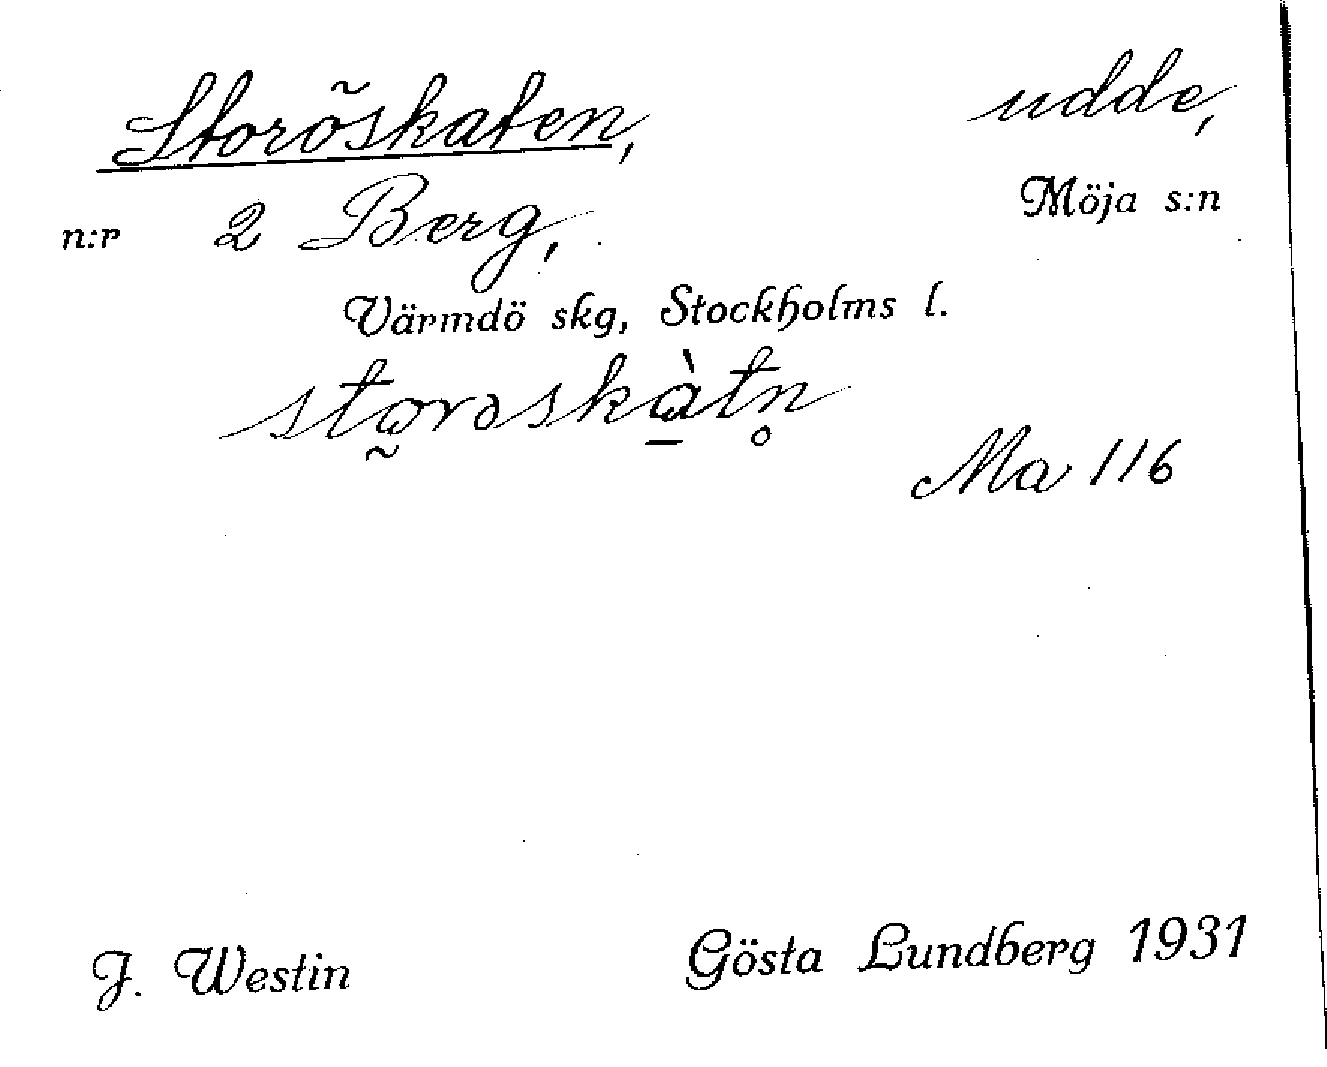 Storöskaten, udde,
n:r 2 Berg, Möja s:n
Värmdö skg, Stockholms l.
storəskàtn̥
Ma 116
J. Westin Gösta Lundberg 1931